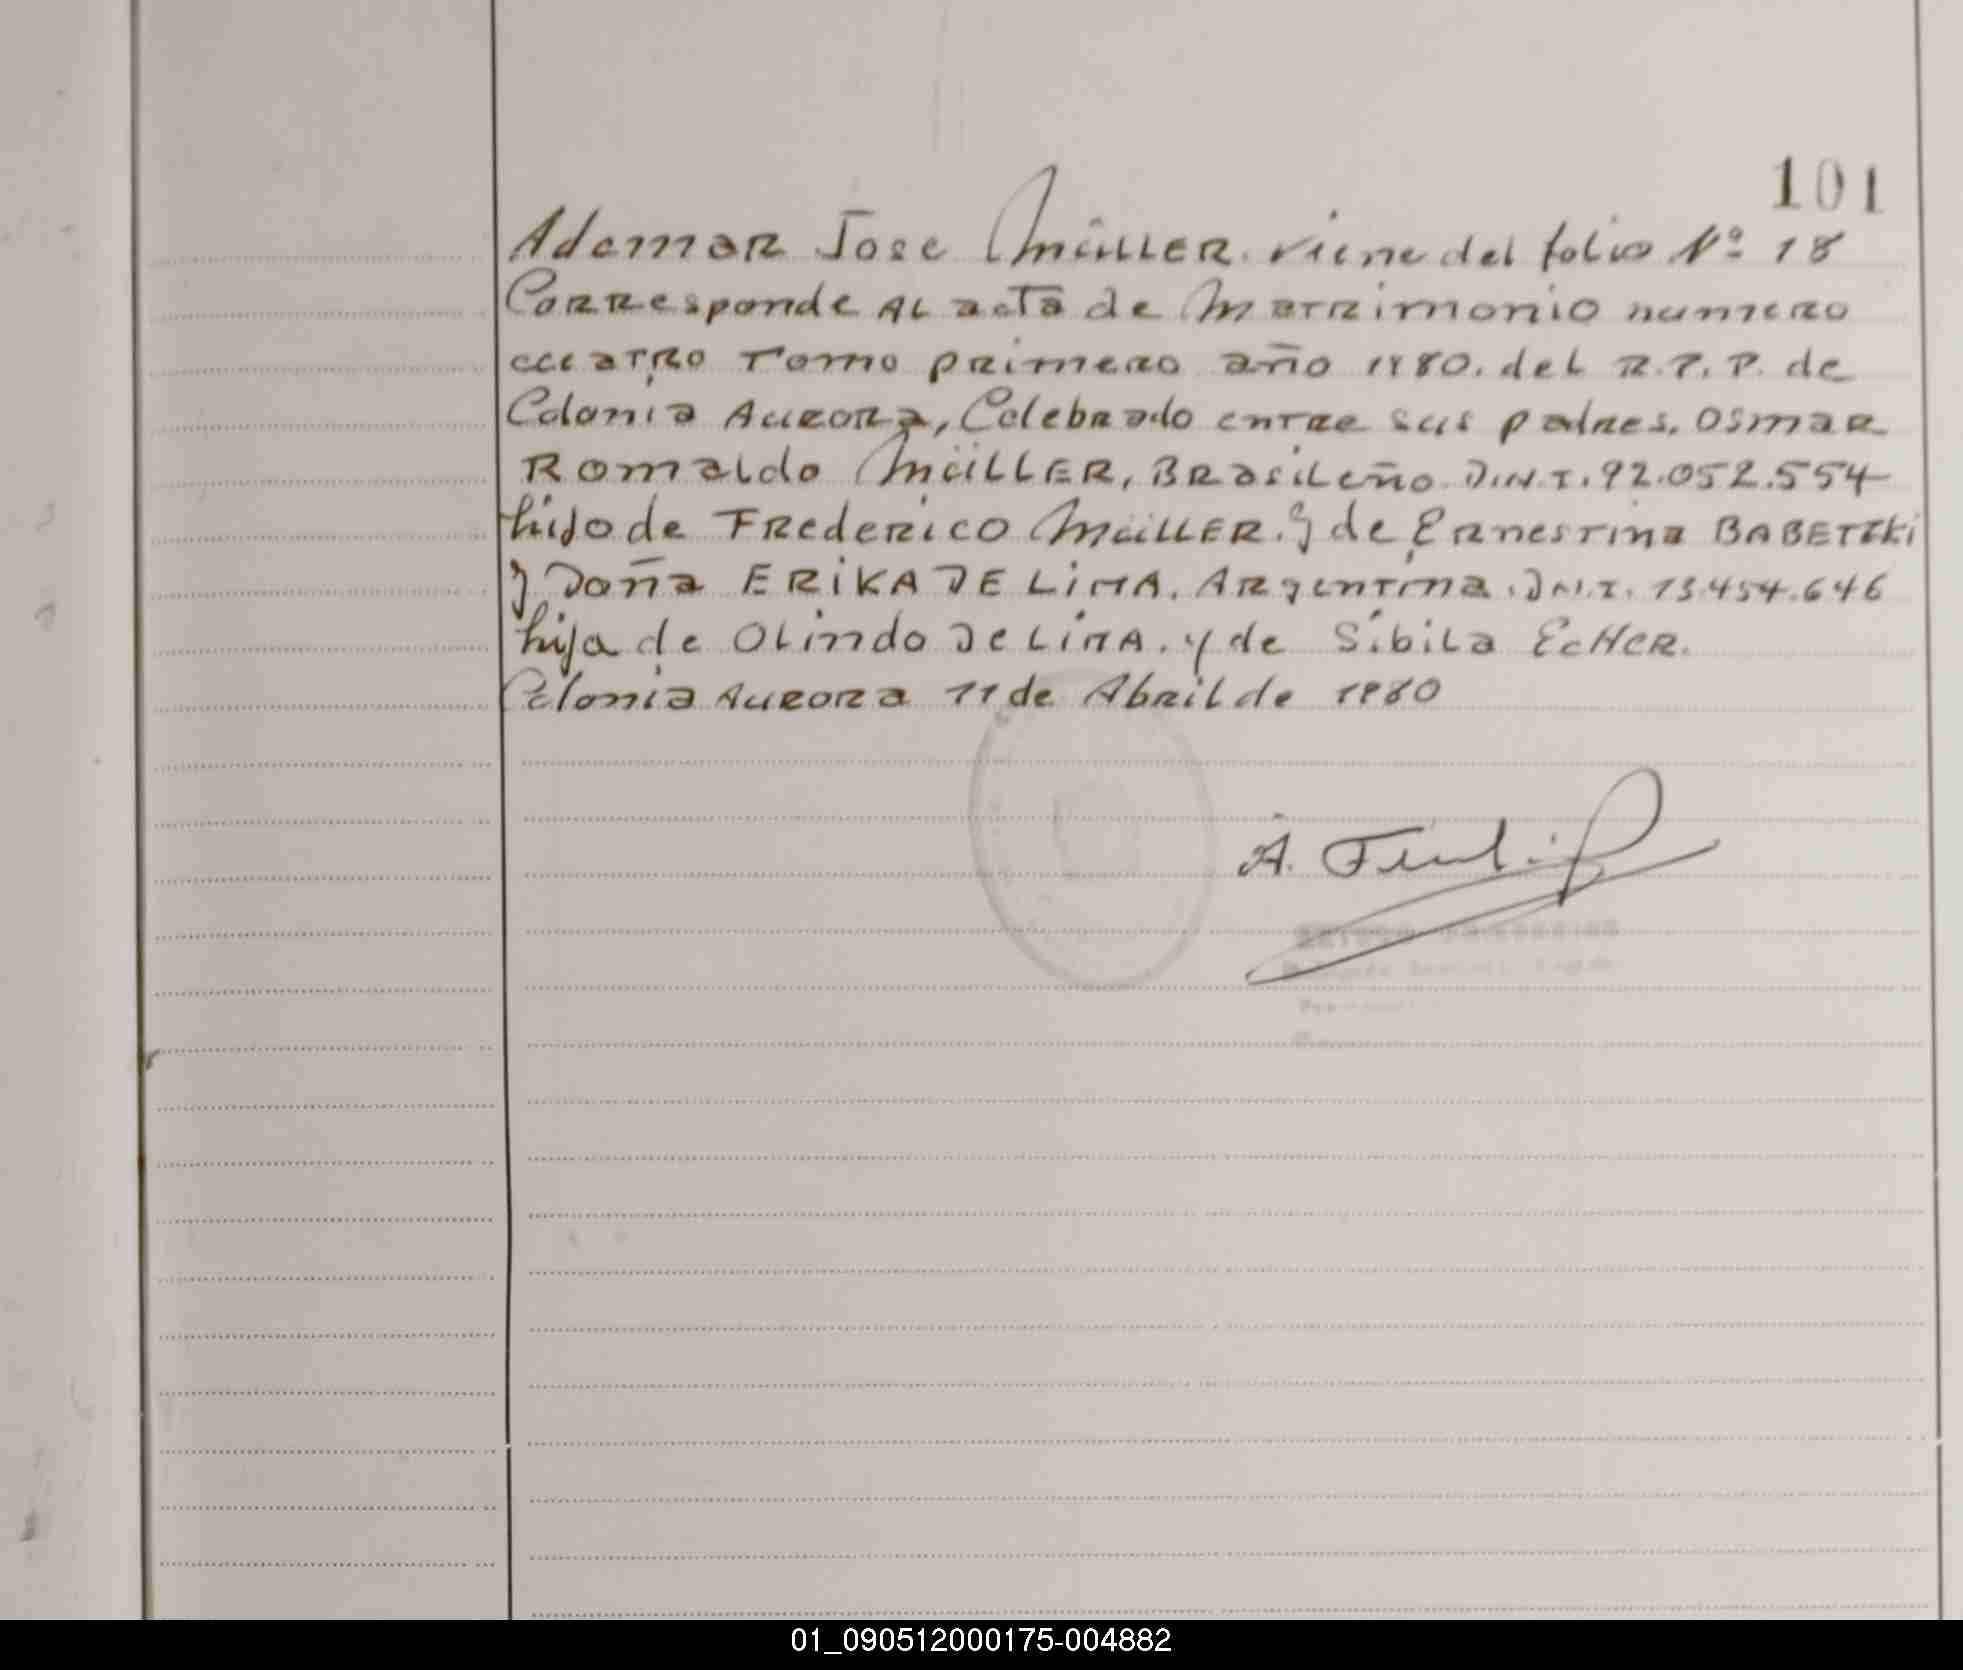 101
Ademar Jose Müller. viene del folio Nº 18
Corresponde al acta de Matrimonio numero
cuatro Tomo primero año 1980. del R.P.P. de
Colonia Aurora, Celebrado entre sus padres. Osmar
Romaldo Müller, Brasileño. D.N.I. 92.052.554
hijo de Frederico Müller. y de Ernestina BABETZKi
y Doña ERIKA DE LiMA. Argentina. D.N.I. 13.454.646
hija de Olindo De LiMA. y de Sibila EcHer.
Colonia Aurora 11 de Abril de 1980
A.
01_090512000175-004882